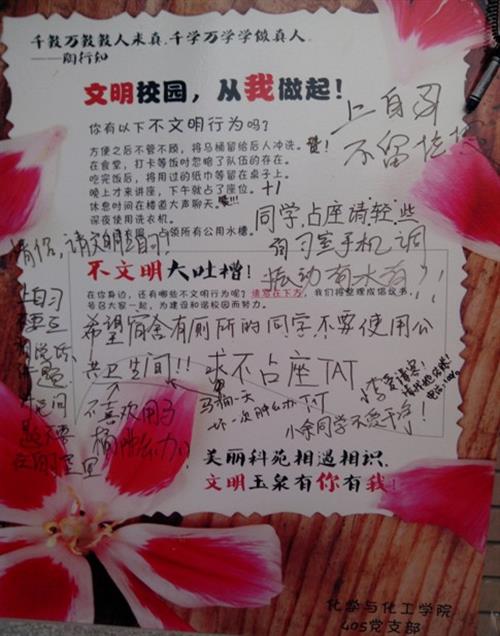 千教万教教人求真，千学万学学做真人。
——陶行知
文明校园，从我做起！
你有以下不文明行为吗？
方便之后不管不顾，将马桶留给后人冲洗。
在食堂，打卡等饭时忽略了队伍的存在。
吃完饭后，将用过的纸巾等留在桌子上。
晚上才来讲座，下午就占了座位。 +1
休息时间在楼道大声聊天。
深夜使用洗衣机。
占领所有公用水槽。
上自习
不留
同学，占座请轻些
自习室手机调
振动有木有？！
情侣，请文明自习！
不文明大吐槽！
在你身边，还有哪些不文明行为呢？请写在下方，我们将整理成倡议书，
号召大家一起，为建设和谐校园而努力。
希望宿舍有厕所的同学不要使用公
共卫生间！！
求不占座TAT
不喜欢用马
桶肿么办
马桶一天
坏一次肿么办TAT
小余同学不爱干净！
上自习
不要互
相说话
问题不要
在自习室里
美丽科苑相遇相识，
文明玉泉有你有我！
化学与化工学院
405党支部